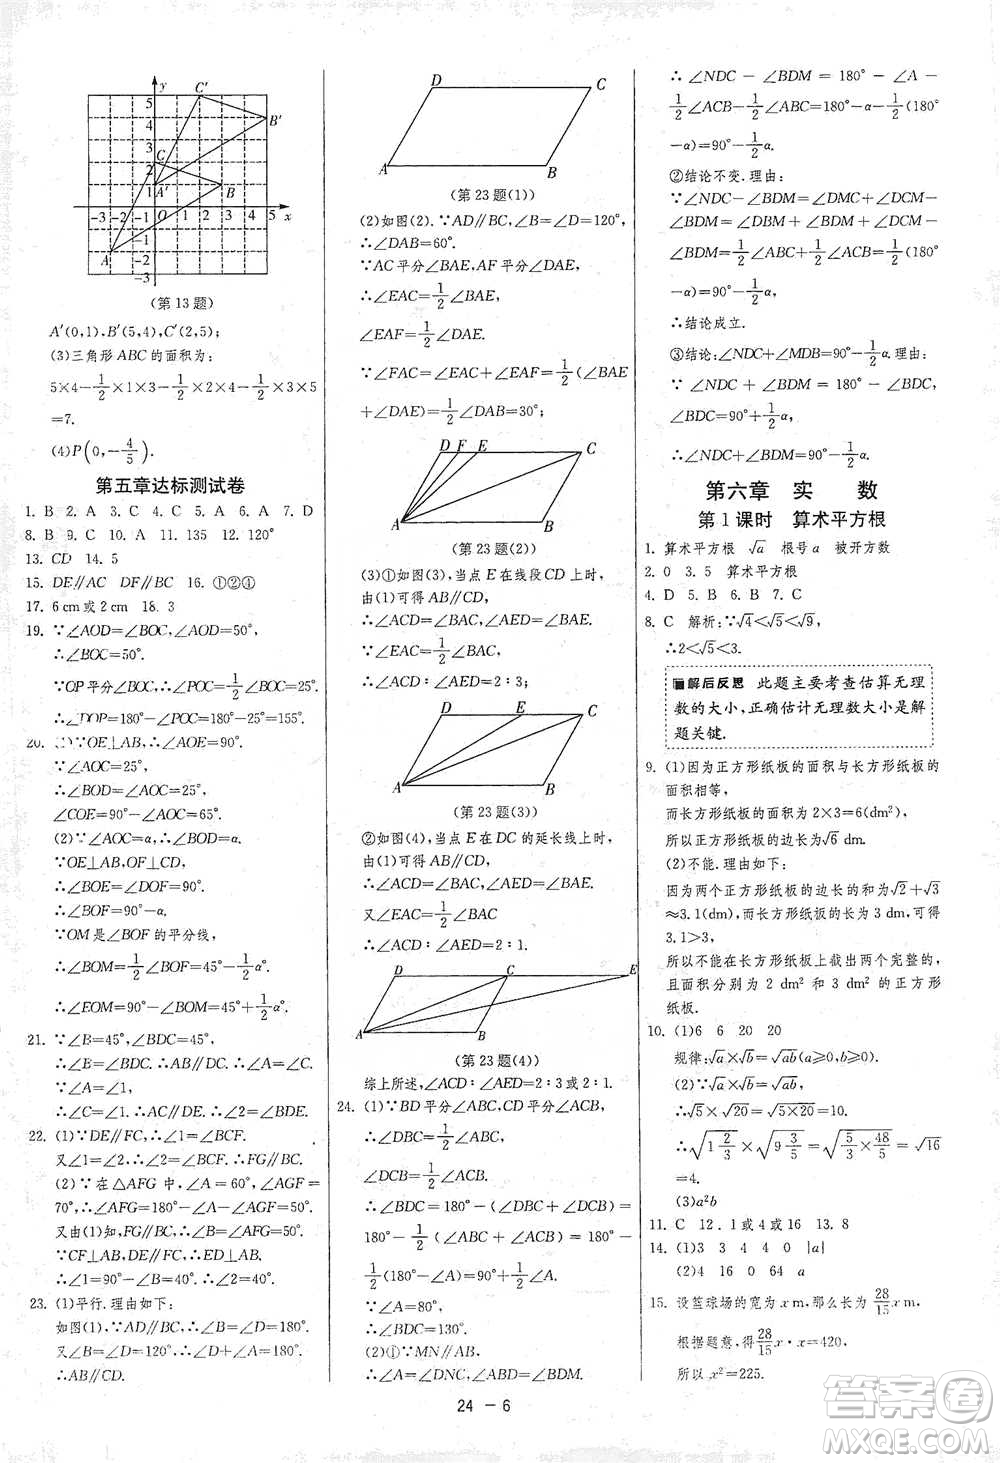 y
C′
5
4
B′
3
C
2
1
A′
B
-3 -2 -1 O 1 2 3 4 5 x
-1
A
-2
-3
(第13题)
A′(0,1),B′(5,4),C′(2,5);
(3)三角形ABC的面积为:
5×4-1/2×1×3-1/2×2×4-1/2×3×5
=7.
(4)P(0,-4/5).
第五章达标测试卷
1. B 2. A 3. C 4. C 5. A 6. A 7. D
8. B 9. C 10. A 11. 135 12. 120°
13. CD 14. 5
15. DE∥AC DF∥BC 16. ①②④
17. 6 cm或2 cm 18. 3
19. ∵∠AOD=∠BOC,∠AOD=50°,
∴∠BOC=50°.
∵OP平分∠BOC,∴∠POC=1/2∠BOC=25°.
∴∠DOP=180°-∠POC=180°-25°=155°.
20. (1)∵OE⊥AB,∴∠AOE=90°.
∵∠AOC=25°,
∴∠BOD=∠AOC=25°,
∠COE=90°-25°=65°.
(2)∵∠AOC=α,∴∠BOD=α.
∵OE⊥AB,OF⊥CD,
∴∠BOE=∠DOF=90°.
∴∠BOF=90°-α.
∵OM是∠BOF的平分线,
∴∠BOM=1/2∠BOF=45°-1/2α.
∴∠EOM=90°-∠BOM=45°+1/2α.
21. ∵∠B=45°,∠BDC=45°,
∴∠B=∠BDC.∴AB∥DC.∴∠2=∠C.
∵∠A=∠1,
∴∠C=∠1.∴AC∥DE.∴∠2=∠1.
22. (1)∵DE∥FC,∴∠1=∠BCF.
又∠1=∠2,∴∠2=∠BCF.∴FG∥BC.
(2)∵在△AFG中,∠A=60°,∠AGF=
70°,∴∠AFG=180°-∠A-∠AGF=50°.
又由(1)知,FG∥BC,∴∠B=∠AFG=50°.
∵CF⊥AB,DE∥FC,∴DE⊥AB.
∴∠1=90°-∠B=40°.∴∠2=40°.
23. (1)平行.理由如下:
如图(1),∵AD∥BC,∴∠A+∠B=180°.
又∠B=∠D=120°,∴∠D+∠A=180°.
∴AB∥CD.
D C
A B
(第23题(1))
(2)如图(2).∵AD∥BC,∠B=∠D=120°,
∴∠DAB=60°.
∵AC平分∠BAE,AF平分∠DAE,
∴∠EAC=1/2∠BAE,
∠EAF=1/2∠DAE.
∴∠FAC=∠EAC+∠EAF=1/2(∠BAE
+∠DAE)=1/2∠DAB=30°;
D F E C
A B
(第23题(2))
(3)①如图(3),当点E在线段CD上时,
由(1)可得AB∥CD,
∴∠ACD=∠BAC,∠AED=∠BAE.
又∠EAC=1/2∠BAC,
∴∠ACD∶∠AED=2∶3;
D E C
A B
(第23题(3))
②如图(4),当点E在DC的延长线上时,
由(1)可得AB∥CD,
∴∠ACD=∠BAC,∠AED=∠BAE.
又∠EAC=1/2∠BAC
∴∠ACD∶∠AED=2∶1.
D C E
A B
(第23题(4))
综上所述,∠ACD∶∠AED=2∶3或2∶1.
24. (1)∵BD平分∠ABC,CD平分∠ACB,
∴∠DBC=1/2∠ABC,
∠DCB=1/2∠ACB.
∴∠BDC=180°-(∠DBC+∠DCB)=
180°-1/2(∠ABC+∠ACB)=180°-
1/2(180°-∠A)=90°+1/2∠A.
∵∠A=80°,
∴∠BDC=130°.
(2)①∵MN∥AB,
∴∠A=∠DNC,∠ABD=∠BDM.
∴∠NDC-∠BDM=180°-∠A-
1/2∠ACB-1/2∠ABC=180°-α-1/2(180°
-α)=90°-1/2α.
②结论不变.理由:
∵∠NDC-∠BDM=∠DMC+∠DCM-
∠BDM=∠DBM+∠BDM+∠DCM-
∠BDM=1/2(∠ABC+∠ACB)=1/2(180°
-α)=90°-1/2α,
∴结论成立.
③结论:∠NDC+∠MDB=90°-1/2α.理由:
∵∠NDC+∠MDB=180°-∠BDC,
∠BDC=90°+1/2α,
∴∠NDC+∠MDB=90°-1/2α.
第六章 实 数
第1课时 算术平方根
1. 算术平方根 √a 根号a 被开方数
2. 0 3. 5 算术平方根
4. D 5. B 6. B 7. C
8. C 解析:∵√4<√5<√9,
∴2<√5<3.
解后反思 此题主要考查估算无理
数的大小,正确估计无理数大小是解
题关键.
9. (1)因为正方形纸板的面积与长方形纸板的
面积相等,
而长方形纸板的面积为2×3=6(dm²),
所以正方形纸板的边长为√6 dm.
(2)不能.理由如下:
因为两个正方形纸板的边长的和为√2+√3
≈3.1(dm),而长方形纸板的长为3 dm,可得
3.1>3,
所以不能在长方形纸板上截出两个完整的,
且面积分别为2 dm²和3 dm²的正方形
纸板.
10. (1)6 6 20 20
规律:√a×√b=√ab(a≥0,b≥0).
(2)∵√a×√b=√ab,
∴√5×√20=√5×20=√100=10.
∴√1 2/3×√9 3/5=√5/3×48/5=√16
=4.
(3)a²b
11. C 12. 1或4或16 13. 8
14. (1)3 3 4 4 0 |a|
(2)4 16 0 64 a
15. 设篮球场的宽为x m,那么长为28/15x m,
根据题意,得28/15x·x=420,
所以x²=225.
24-6
答案圈
MXQE.COM